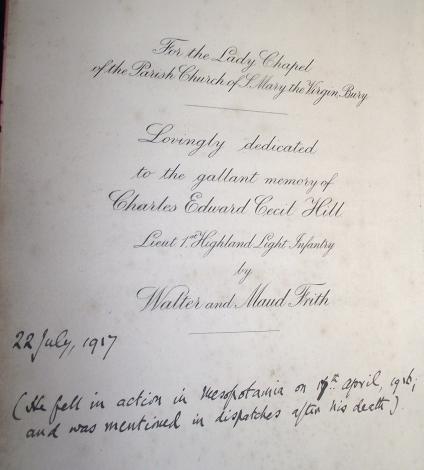 For the Lady Chapel
of the Parish Church of S. Mary the Virgin, Bury
Lovingly dedicated
to the gallant memory of
Charles Edward Cecil Hill
Lieut 1st Highland Light Infantry
by
Walter and Maud Frith
22 July, 1917
(He fell in action in Mesopotamia on april, 1916;
and was mentioned in dispatches after his death).